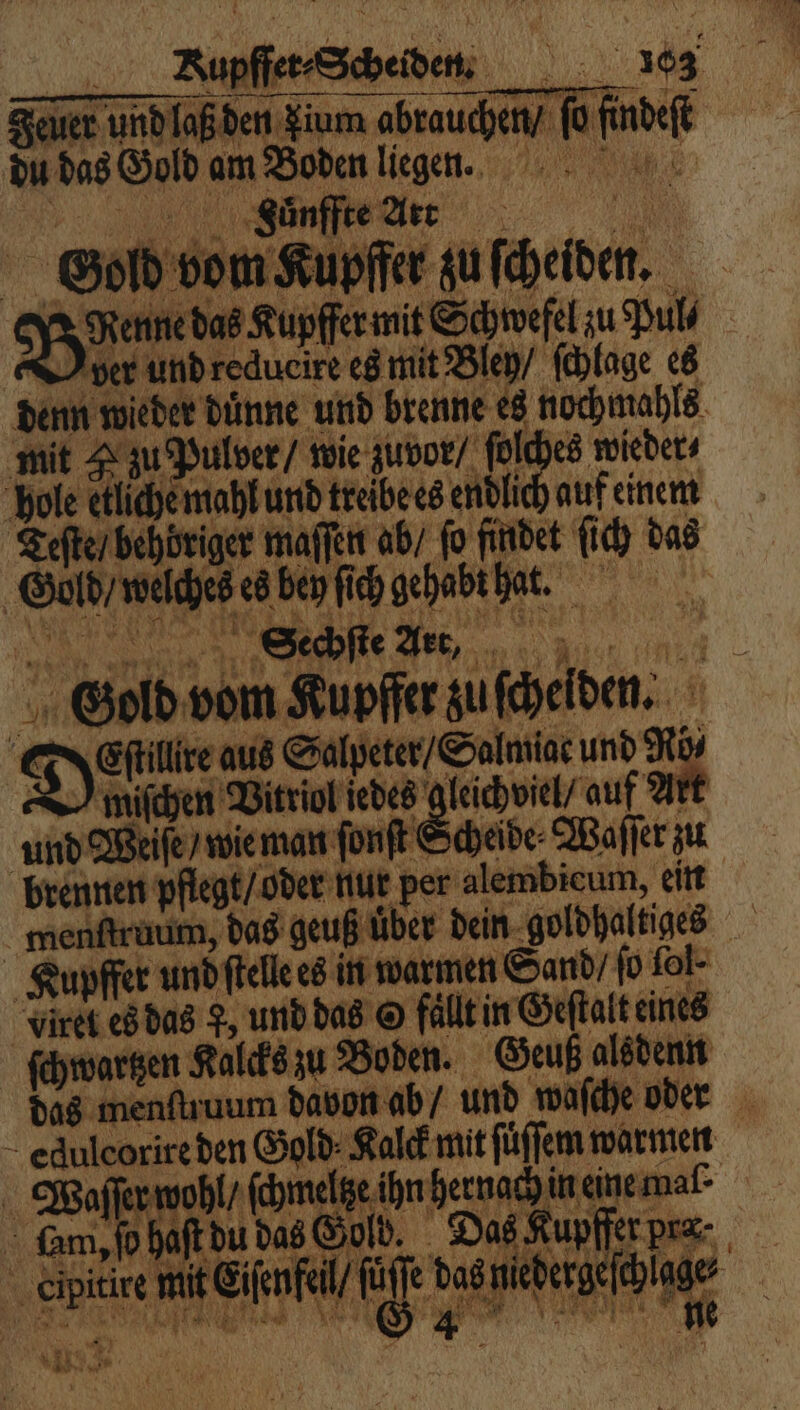 Kupffer-Scheiden. 103
Feuer und laß den ☿ium abrauchen/ ſo findeſt
du das Gold am Boden liegen.
Fuͤnffte Art
Gold vom Kupffer zu ſcheiden.
BRenne das Kupffer mit Schwefel zu Pul-
ver und reducire es mit Bley/ ſchlage es
denn wieder duͤnne und brenne es nochmahls
mit 🜍 zu Pulver/ wie zuvor/ ſolches wieder-
hole etliche mahl und treibe es endlich auf einem
Teſte/ behoͤriger maſſen ab/ ſo findet ſich das
Gold/ welches es bey ſich gehabt hat.
Sechſte Art,
Gold vom Kupffer zu ſcheiden.
DEſtillire aus Salpeter/ Salmiac und Roͤ-
miſchen Vitriol iedes gleichviel/ auf Art
und Weiſe/ wie man ſonſt Scheide-Waſſer zu
brennen pflegt/ oder nur per alembicum, ein
menſtruum, das geuß uͤber dein goldhaltiges
Kupffer und ſtelle es in warmen Sand/ ſo ſol-
viret es das ♀, und das ☉ faͤllt in Geſtalt eines
ſchwartzen Kalcks zu Boden. Geuß alsdenn
das menſtruum davon ab/ und waſche oder
edulcorire den Gold-Kalck mit ſuͤſſem warmen
Waſſer wohl/ ſchmeltze ihn hernach in eine maſ-
ſam, ſo haſt du das Gold. Das Kupffer præ-
cipitire mit Eiſenfeil/ ſuͤſſe das niedergeſchlage-
G 4 ne